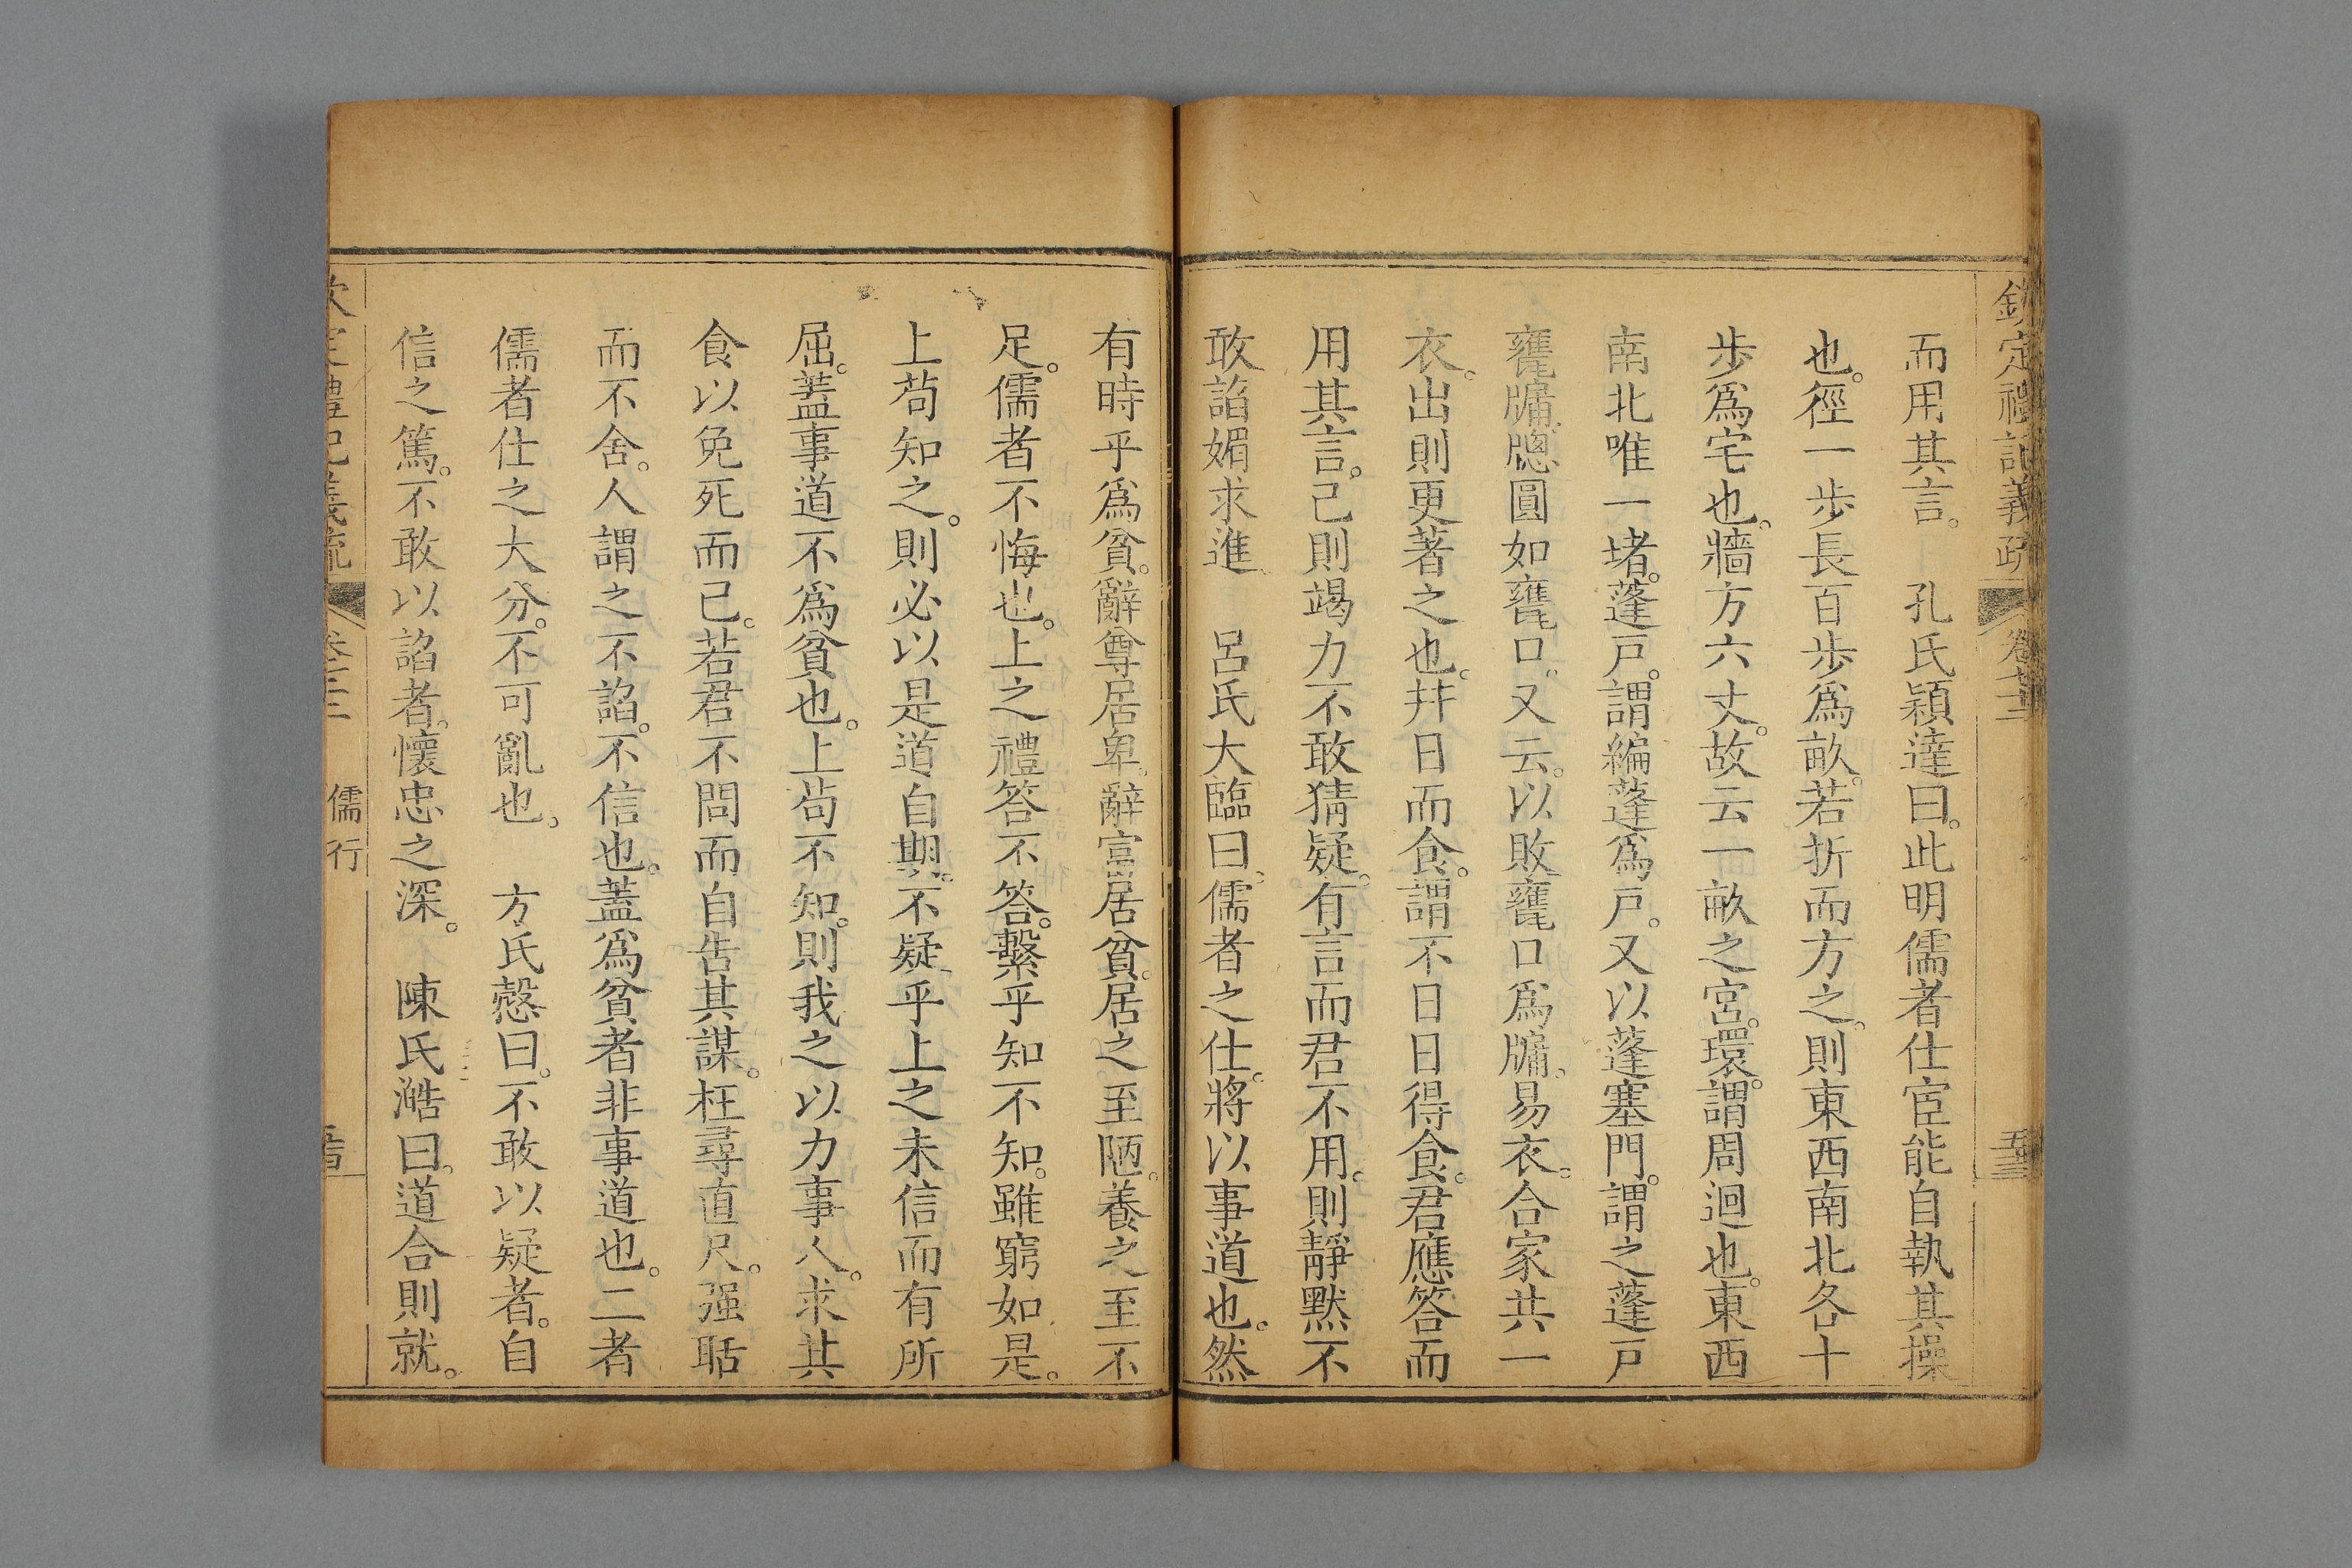 欽定禮記義疏 卷七十三
而用其言。 孔氏穎達曰。此明儒者仕宦能自執其操
也。徑一歩長百歩爲畝。若折而方之。則東西南北各十
歩爲宅也。牆方六丈。故云一畝之宮。環。謂周迴也。東西
南北唯一堵。蓬戸。謂編蓬爲戸。又以蓬塞門。謂之蓬戸
甕牖。牕圓如甕口。又云。以敗甕口爲牖。易衣。合家共一
衣。出則更著之也。并日而食。謂不日日得食。君應答而
用其言。己則竭力不敢猜疑。有言而君不用。則靜默不
敢諂媚求進 呂氏大臨曰。儒者之仕。將以事道也。然
有時乎爲貧。辭尊居卑。辭富居貧。居之至陋。養之至不
足。儒者不悔也。上之禮答不答。繫乎知不知。雖窮如是。
上苟知之。則必以是道自期。不疑乎上之未信而有所
屈。蓋事道不爲貧也。上苟不知。則我之以力事人。求其
食以免死而已。若君不問而自告其謀。枉尋直尺。强聒
而不舍。人謂之不諂。不信也。蓋爲貧者非事道也。二者
儒者仕之大分。不可亂也。 方氏慤曰。不敢以疑者。自
信之篤。不敢以諂者。懷忠之深。 陳氏澔曰。道合則就。
儒行